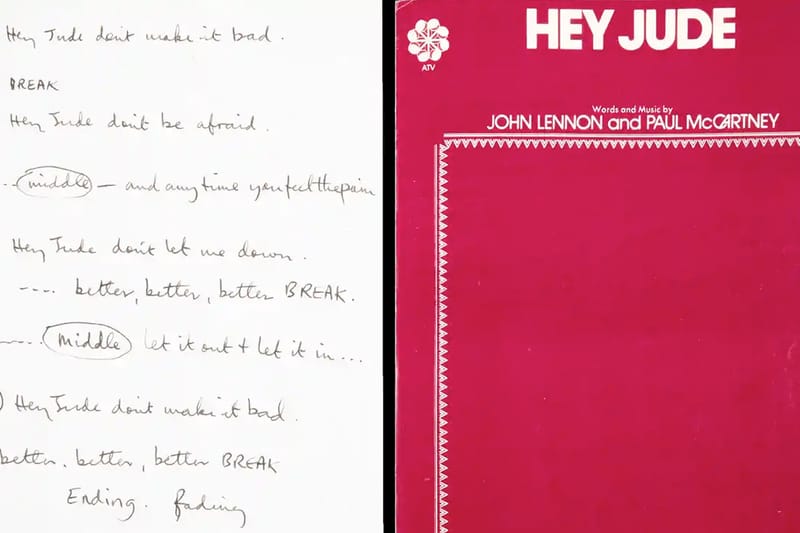 Hey Jude don't make it bad.
BREAK
Hey Jude don't be afraid.
... middle — and anytime you feel the pain
Hey Jude don't let me down.
---- better, better, better BREAK.
---- middle let it out + let it in ...
) Hey Jude don't make it bad.
better, better, better BREAK
Ending. fading
HEY JUDE
ATV
Words and Music by
JOHN LENNON and PAUL McCARTNEY